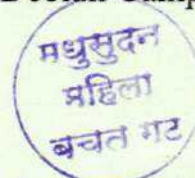 मधुसुदन
महिला
बचत गट